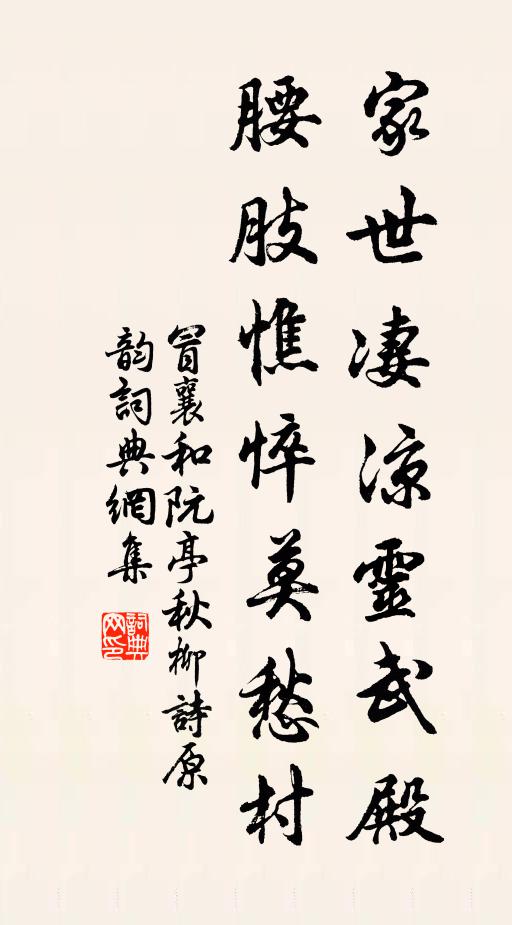 家世凄涼靈武殿
腰肢憔悴莫愁村
冒襄和阮亭秋柳詩原
韵詞典網集
詞典
网印